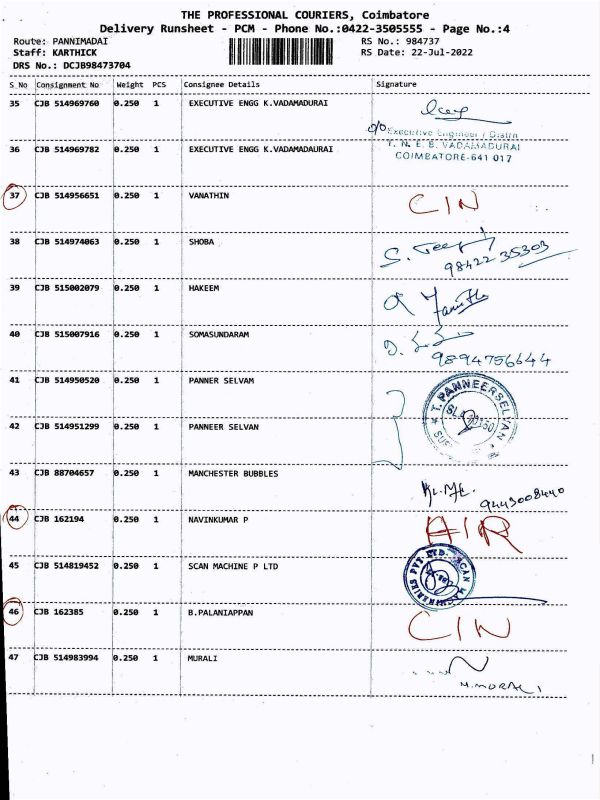 THE PROFESSIONAL COURIERS, Coimbatore
Delivery Runsheet - PCM - Phone No.:0422-3505555 - Page No.:4
Route: PANNIMADAI RS No.: 984737
Staff: KARTHICK RS Date: 22-Jul-2022
DRS No.: DCJB98473704
S No Consignment No Weight PCS Consignee Details Signature
35 CJB 514969760 0.250 1 EXECUTIVE ENGG K.VADAMADURAI
Executive Engineer / Distn
36 CJB 514969782 0.250 1 EXECUTIVE ENGG K.VADAMADAURAI T. N. E. B. VADAMADURAI
COIMBATORE-641 017
37 CJB 514956651 0.250 1 VANATHIN CIN
38 CJB 514974063 0.250 1 SHOBA
98422 35303
39 CJB 515002079 0.250 1 HAKEEM
40 CJB 515007916 0.250 1 SOMASUNDARAM
9894756644
41 CJB 514950520 0.250 1 PANNER SELVAM T. PANNEERSELVAN
42 CJB 514951299 0.250 1 PANNEER SELVAN
43 CJB 88704657 0.250 1 MANCHESTER BUBBLES
9443008440
44 CJB 162194 0.250 1 NAVINKUMAR P AIR
45 CJB 514819452 0.250 1 SCAN MACHINE P LTD
46 CJB 162385 0.250 1 B.PALANIAPPAN CIN
47 CJB 514983994 0.250 1 MURALI